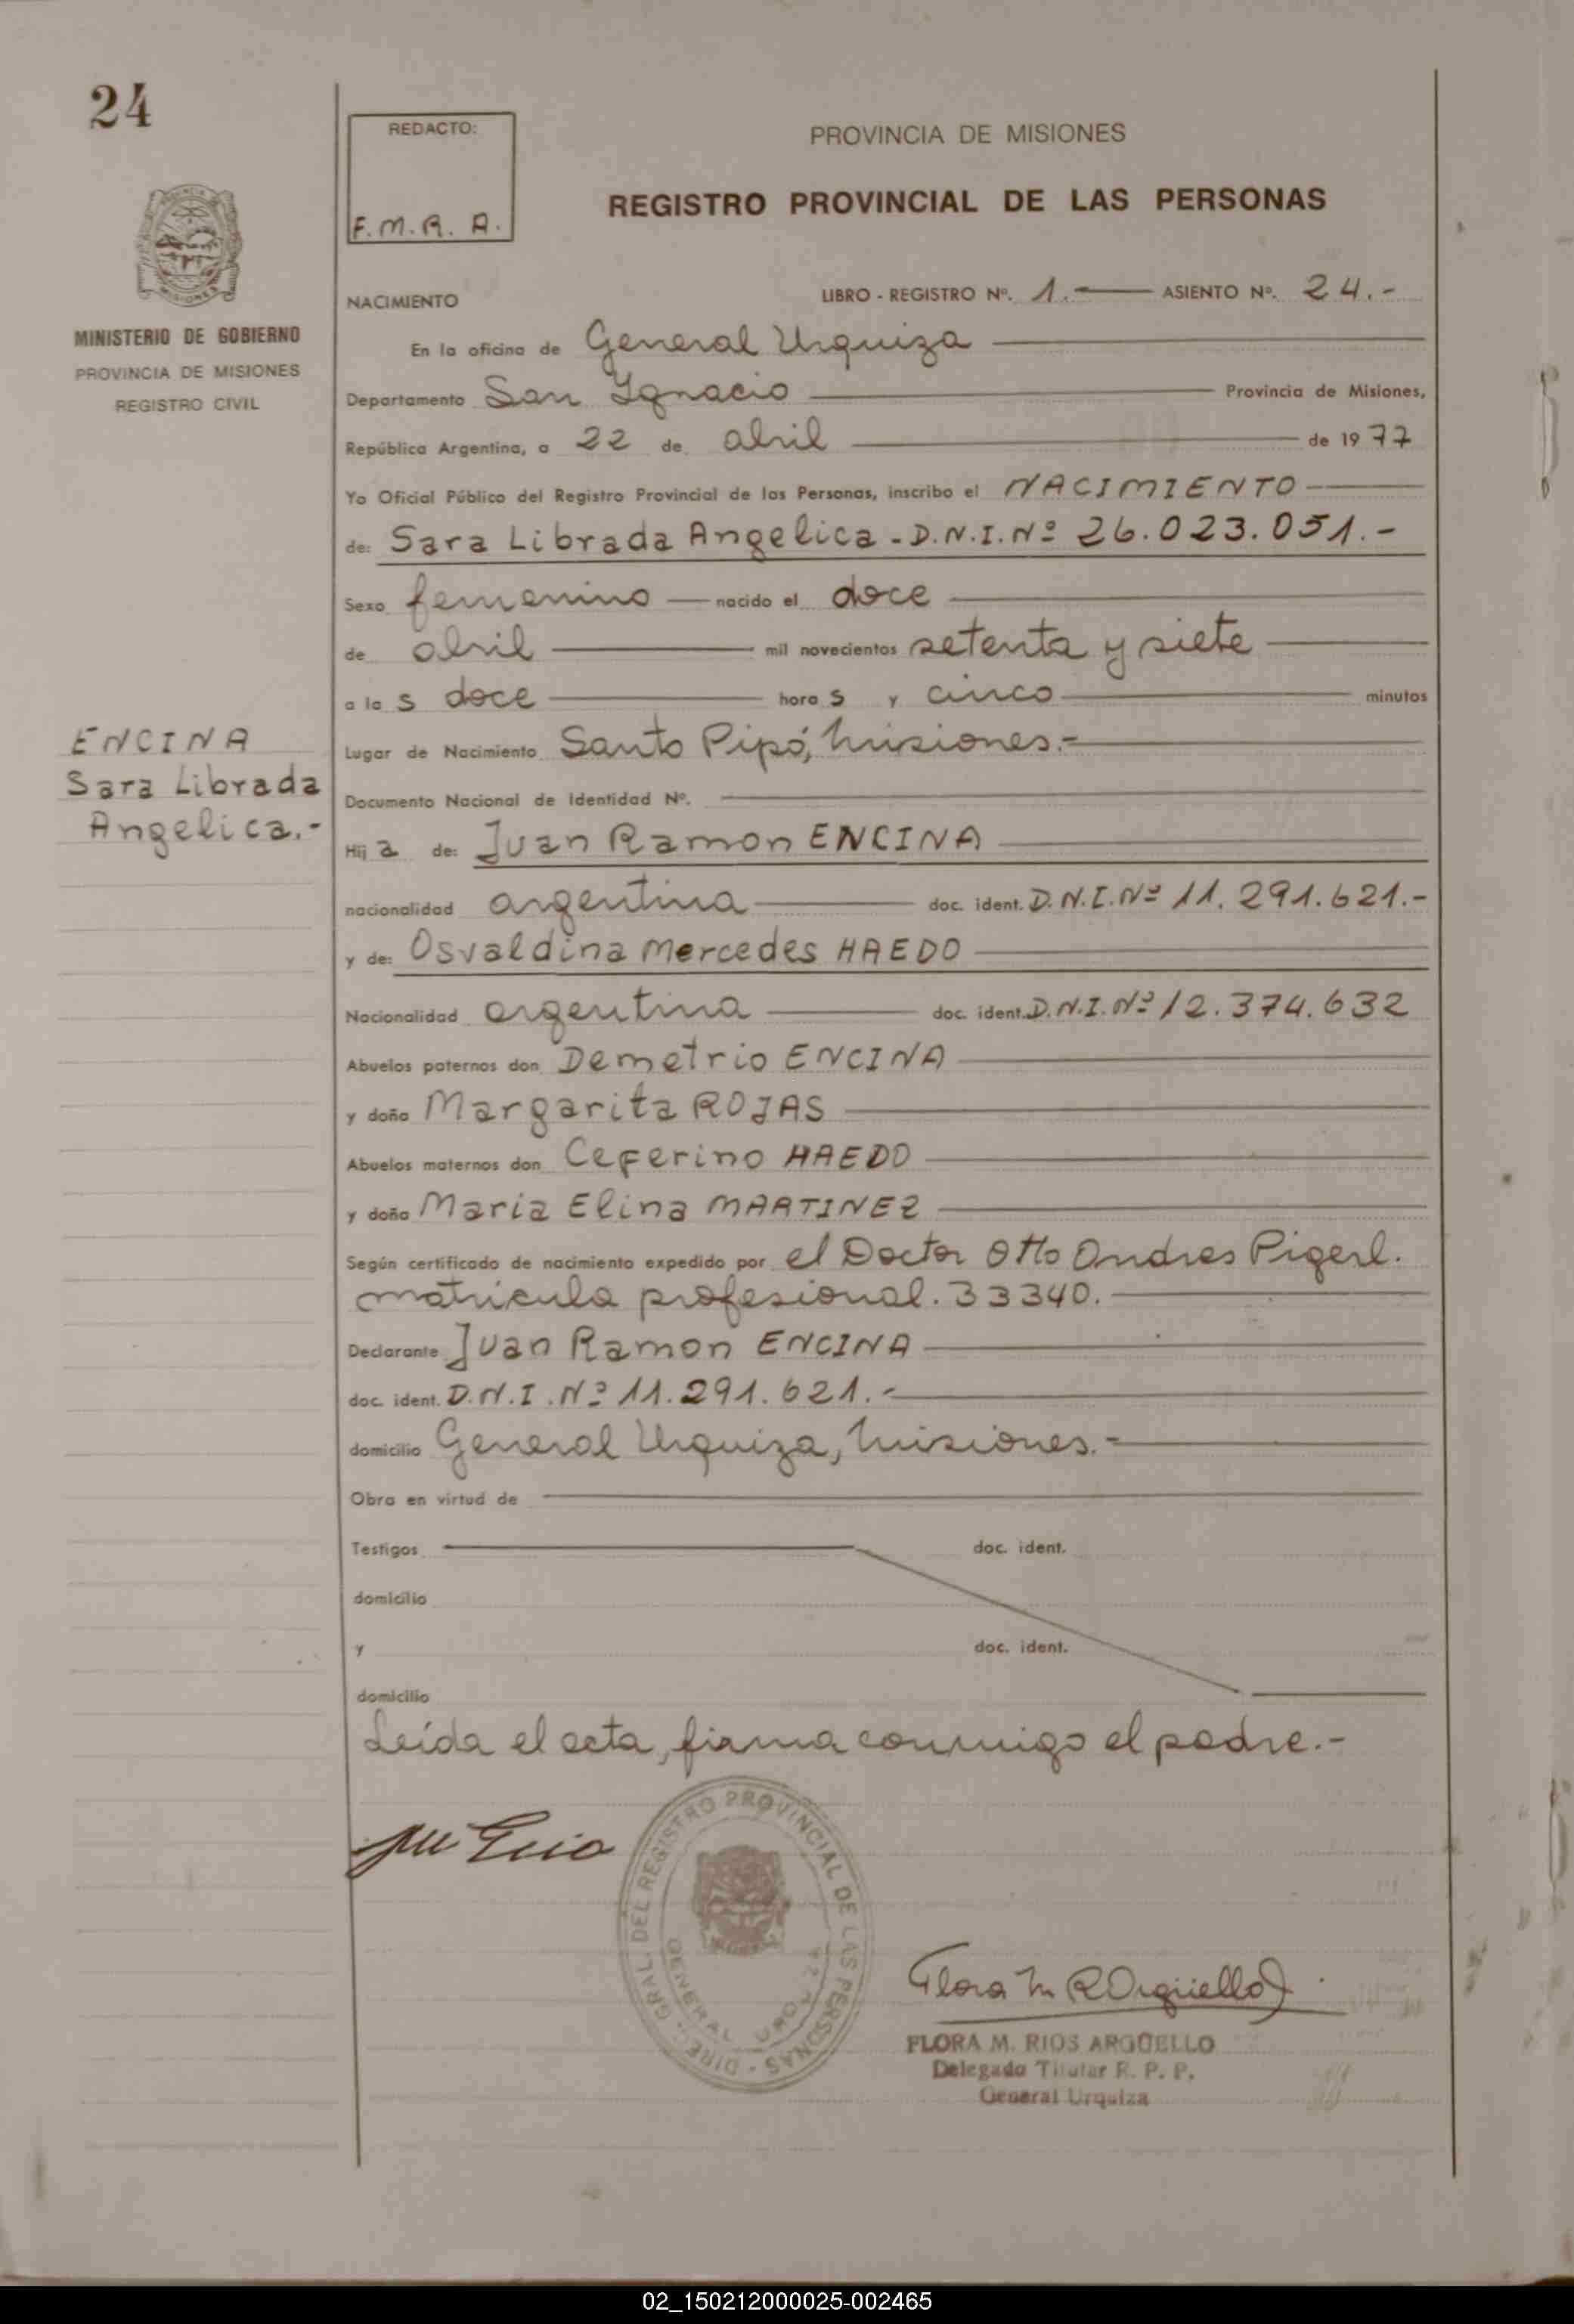 24
REDACTO:
F. M. R. A.
PROVINCIA DE MISIONES
REGISTRO PROVINCIAL DE LAS PERSONAS
MISIONES
MINISTERIO DE GOBIERNO
PROVINCIA DE MISIONES
REGISTRO CIVIL
NACIMIENTO LIBRO - REGISTRO Nº. 1.- ASIENTO Nº. 24.-
En la oficina de General Urquiza
Departamento San Ignacio Provincia de Misiones,
República Argentina, a 22 de abril de 1977
Yo Oficial Público del Registro Provincial de las Personas, inscribo el NACIMIENTO
de: Sara Librada Angelica - D.N.I. Nº 26.023.051.-
Sexo femenino nacido el doce
de abril mil novecientos setenta y siete
a las doce horas y cinco minutos
ENCINA
Sara Librada
Angelica.-
Lugar de Nacimiento Santo Pipó, Misiones.-
Documento Nacional de Identidad Nº.
Hija de: Juan Ramon ENCINA
nacionalidad argentina doc. ident. D.N.I. Nº 11.291.621.-
y de: Osvaldina Mercedes HAEDO
Nacionalidad argentina doc. ident. D.N.I. Nº 12.374.632
Abuelos paternos don Demetrio ENCINA
y doña Margarita ROJAS
Abuelos maternos don Ceferino HAEDO
y doña Maria Elina MARTINEZ
Según certificado de nacimiento expedido por el Doctor Otto Andres Pigerl.
matricula profesional. 33340.
Declarante Juan Ramon ENCINA
doc. ident. D.N.I. Nº 11.291.621.-
domicilio General Urquiza, Misiones.-
Obra en virtud de
Testigos doc. ident.
domicilio
y doc. ident.
domicilio
Leída el acta, firma conmigo el padre.-
DIRE. GRAL. DEL REGISTRO PROVINCIAL DE LAS PERSONAS -
GENERAL
Flora M R Argüello
FLORA M. RIOS ARGÜELLO
Delegado Titular R. P. P.
General Urquiza
02_150212000025-002465